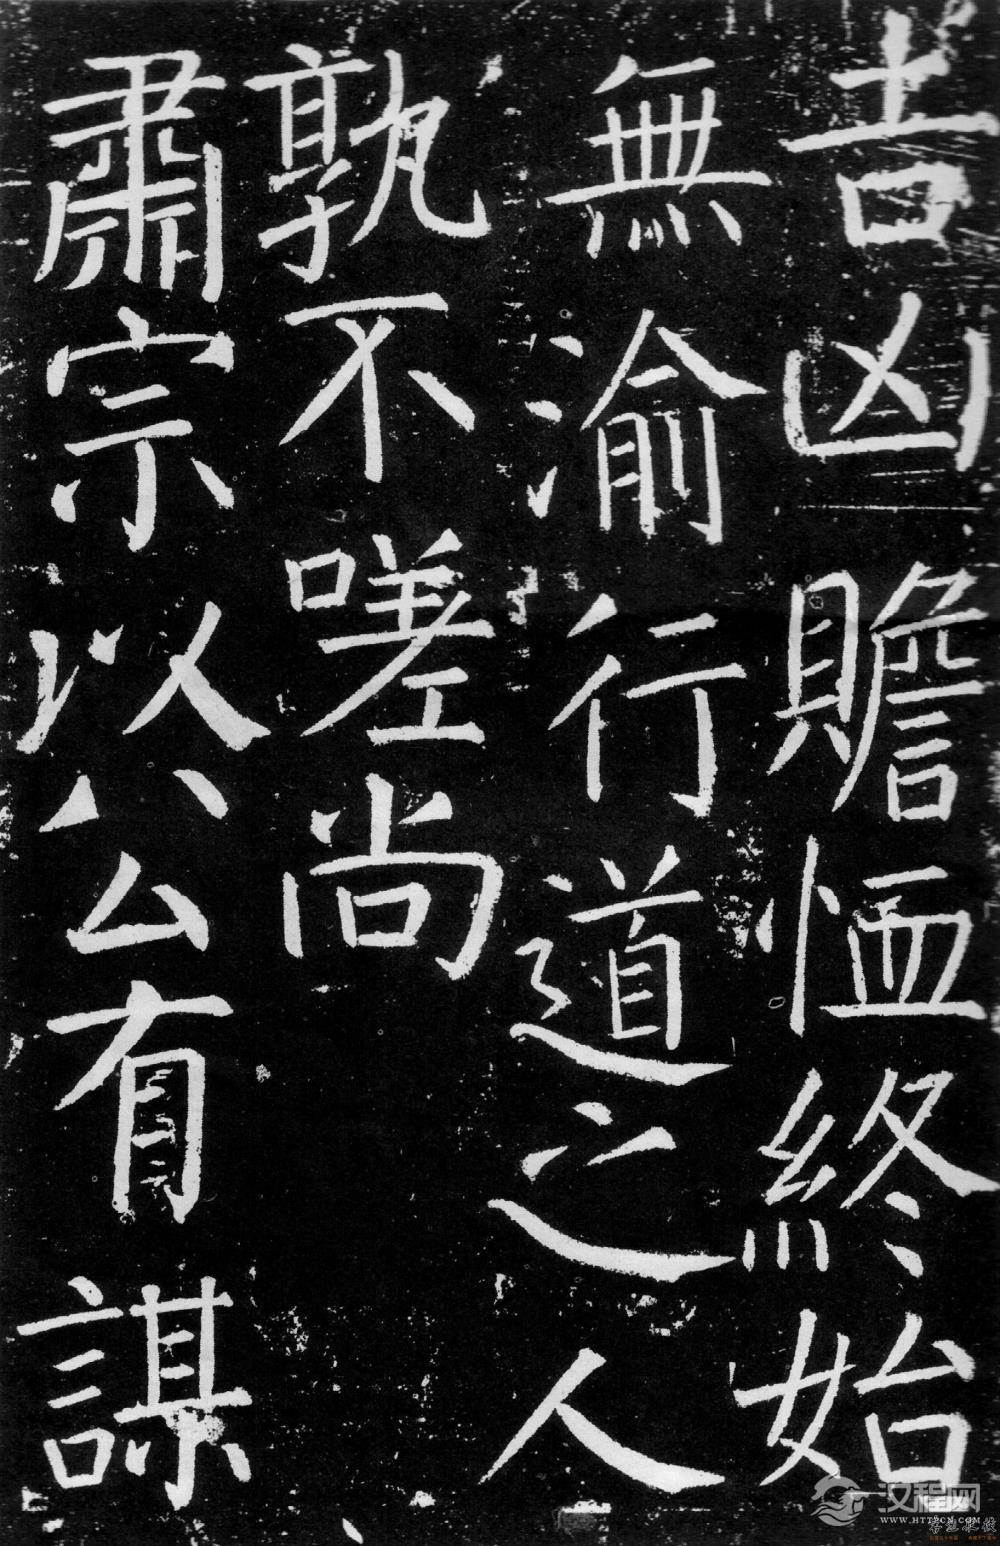 吉凶贍恤終始
無渝行道之人
孰不嗟尚
肅宗以公有謀
汉程网
WWW.HTTPCN.COM